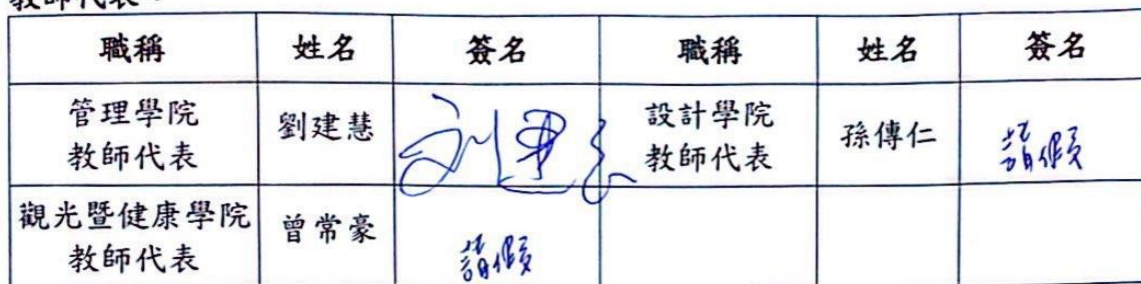 教師代表：
職稱 姓名 簽名 職稱 姓名 簽名
管理學院 教師代表 劉建慧 刘建慧 設計學院 教師代表 孫傳仁 請假
觀光暨健康學院 教師代表 曾常豪 請假